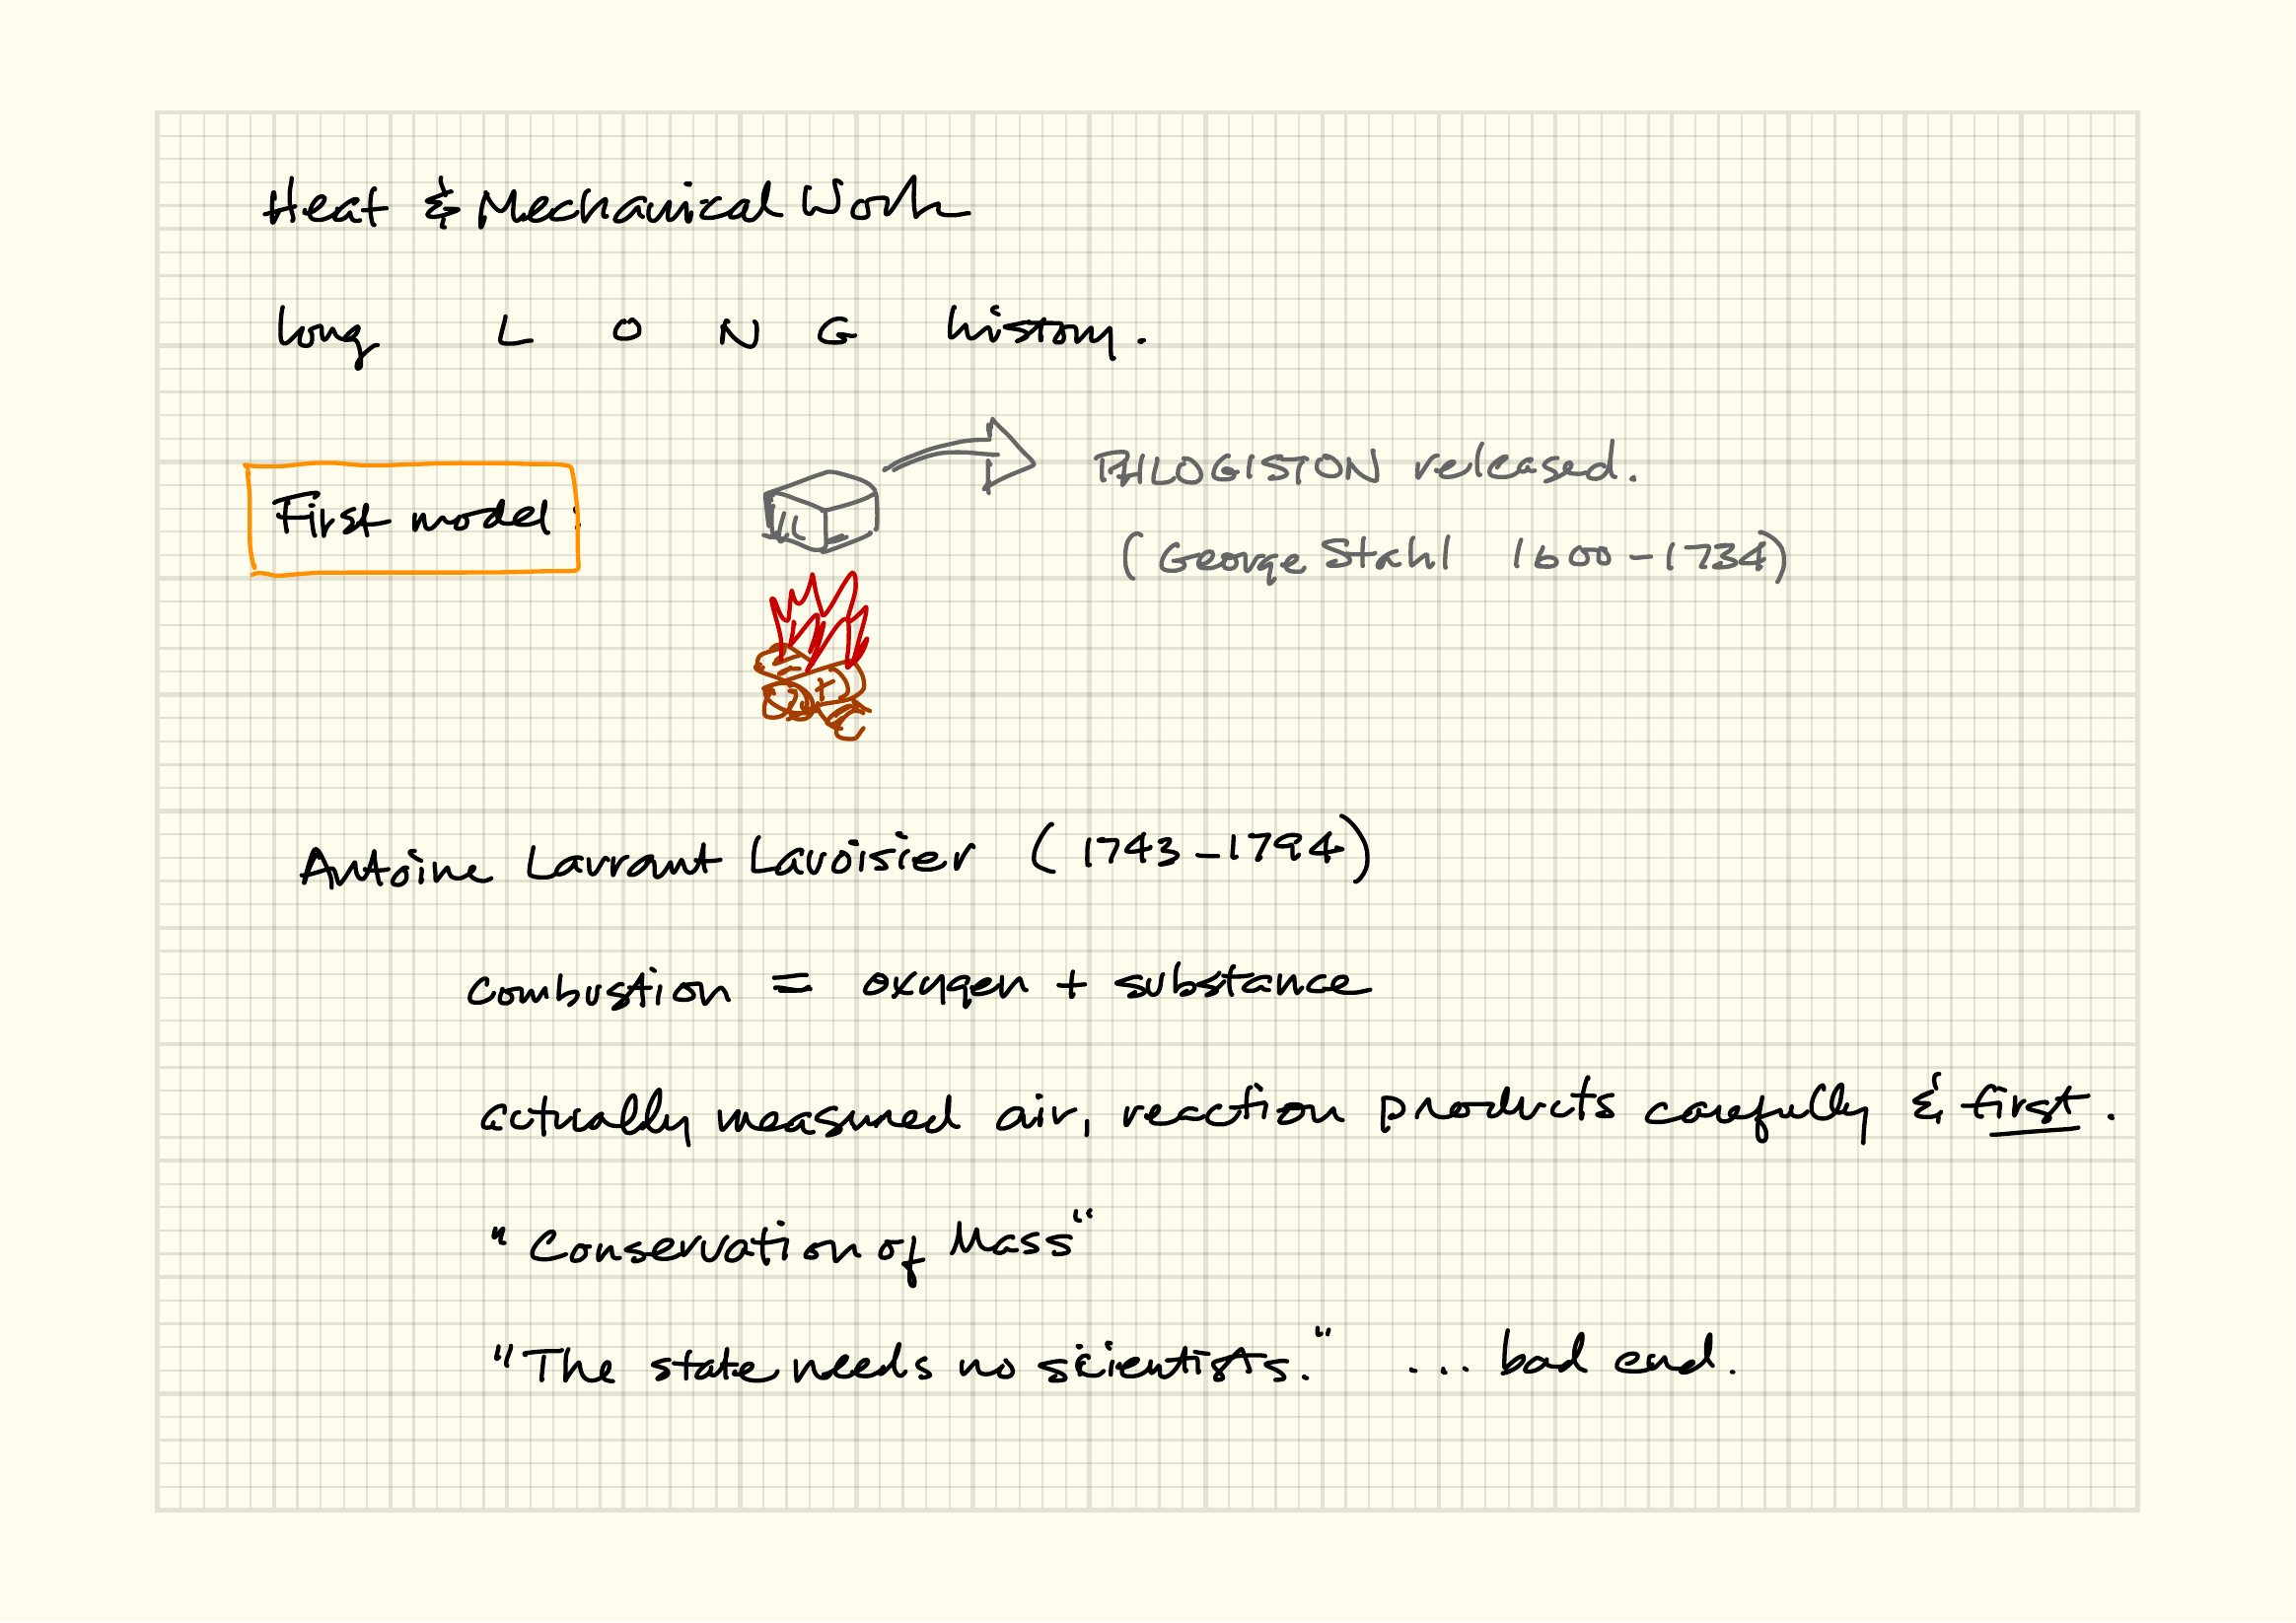 Heat & Mechanical Work
long L O N G history.
First model:
PHLOGISTON released.
(George Stahl 1600-1734)
Antoine Lavrant Lavoisier (1743-1794)
combustion = oxygen + substance
actually measured air, reaction products carefully & first.
"Conservation of Mass"
"The state needs no scientists." ... bad end.